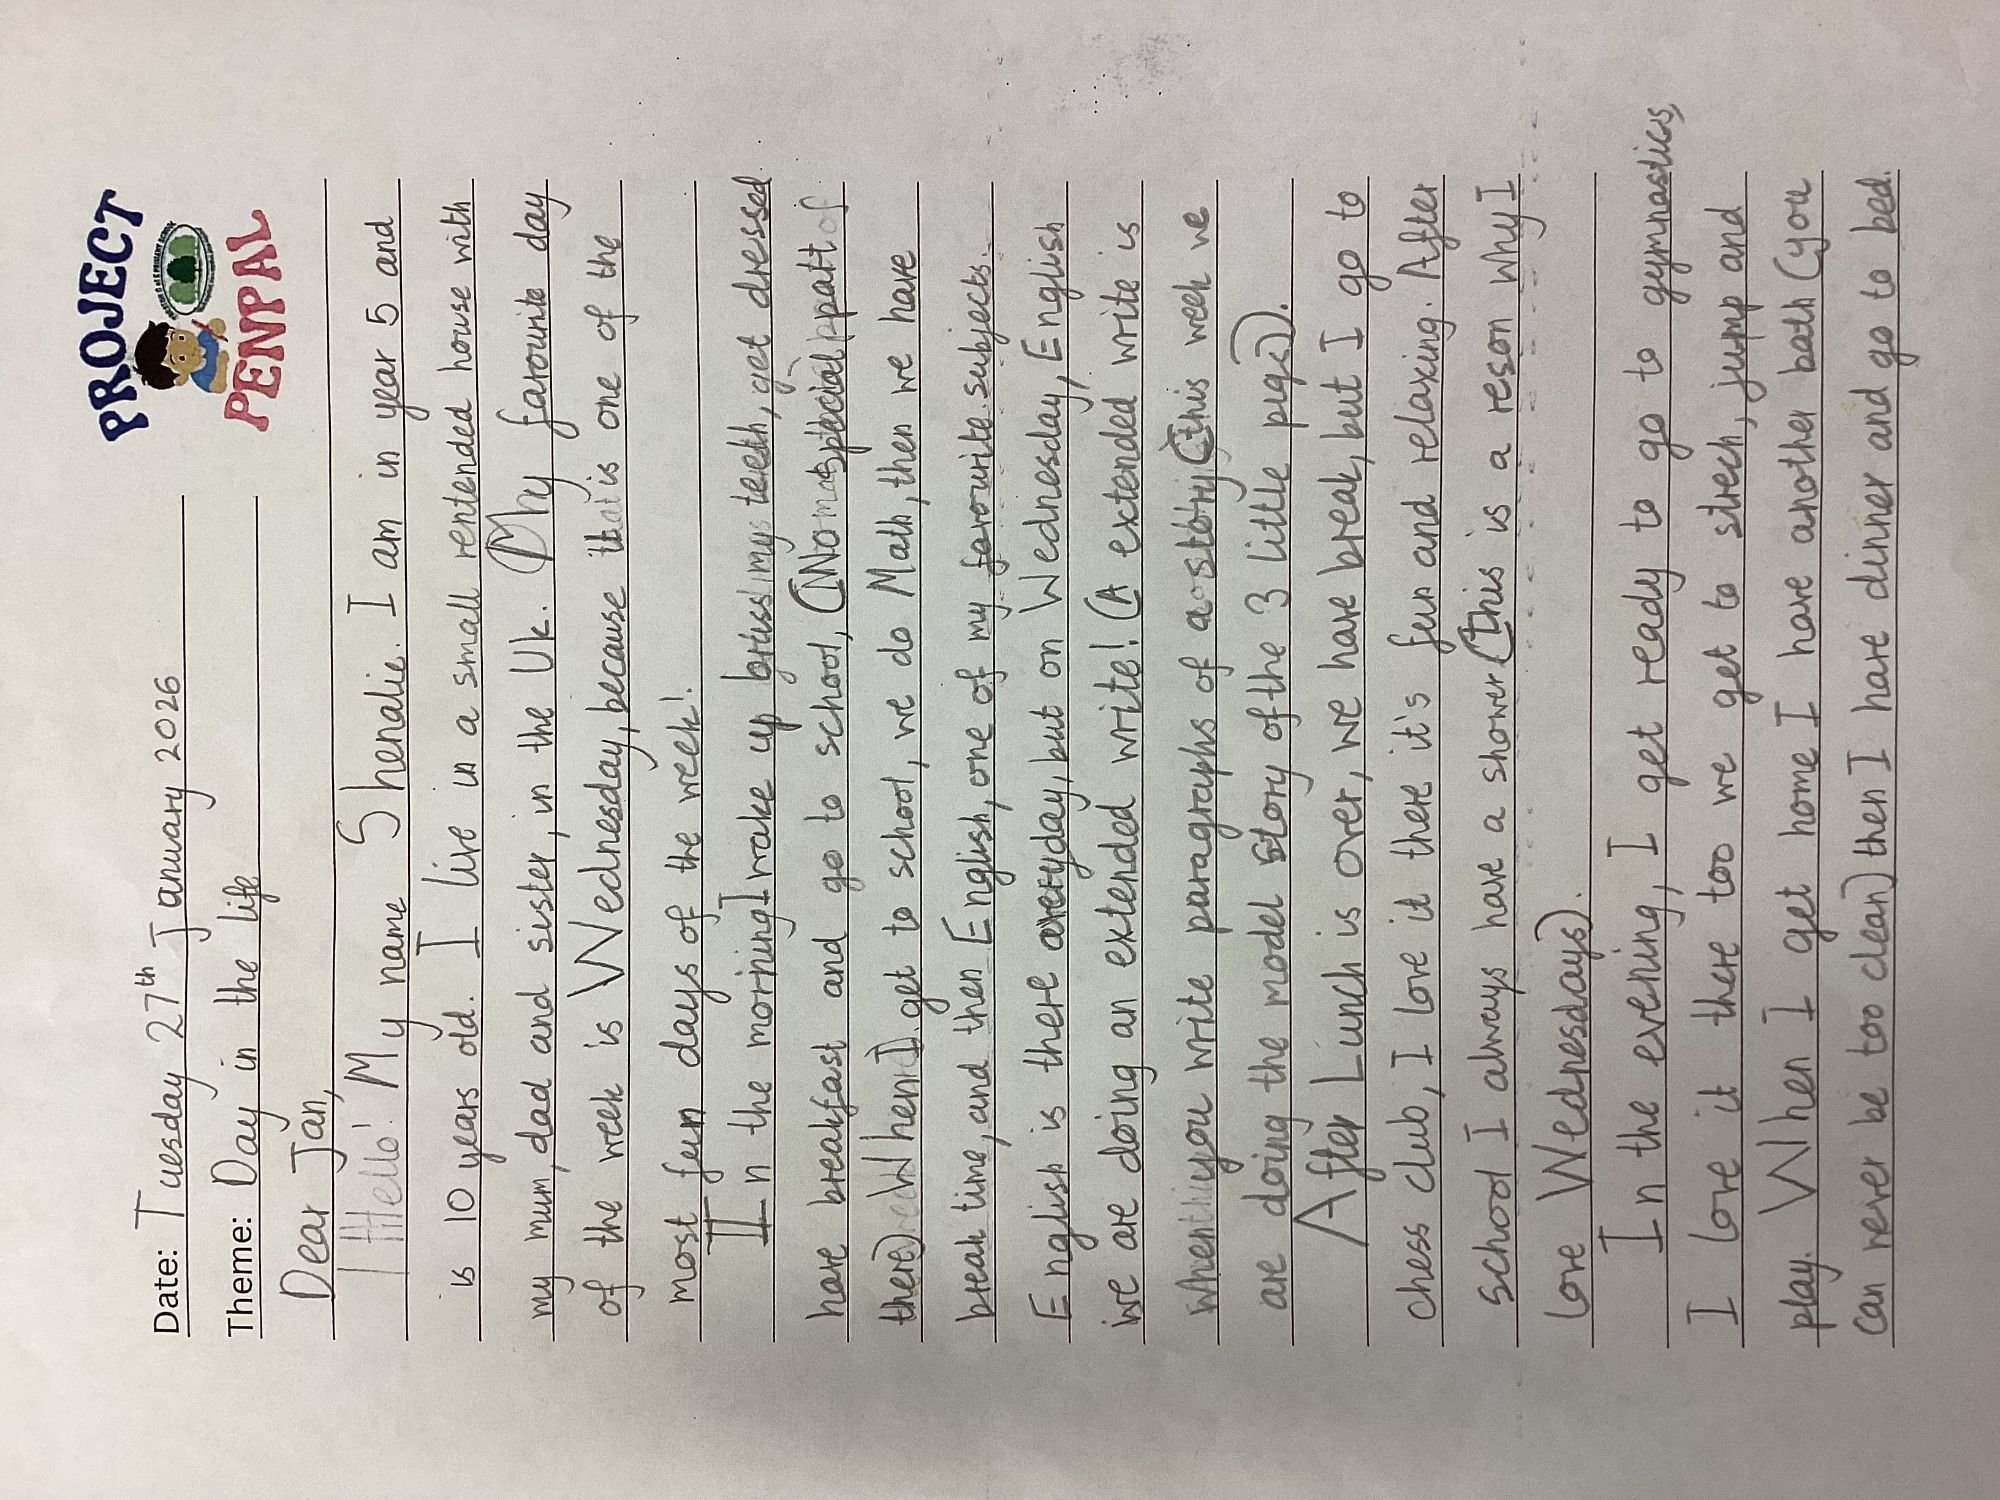 PROJECT
PENPAL
Date: Tuesday 27th January 2026
Theme: Day in the life
Dear Jan,
Hello! My name Shenalie. I am in year 5 and
is 10 years old. I live in a small rentended house with
my mum, dad and sister, in the Uk. (My favourite day
of the week is Wednesday, because that is one of the
most fun days of the week!
In the morning I wake up bruss my teeth, get dressed
have breakfast and go to school, (No special part of
there) When I get to school, we do Math, then we have
break time, and then English, one of my favourite subjects.
English is there everyday, but on Wednesday, English
we are doing an extended write! (A extended write is
when you write paragraphs of a story (this week we
are doing the model story of the 3 little pigs)).
After Lunch is over, we have break, but I go to
chess club, I love it there it's fun and relaxing. After
school I always have a shower (this is a reson why I
love Wednesdays).
In the evening, I get ready to go to gymnastics,
I love it there too we get to strech, jump and
play. When I get home I have another bath (you
can never be too clean) then I have dinner and go to bed.